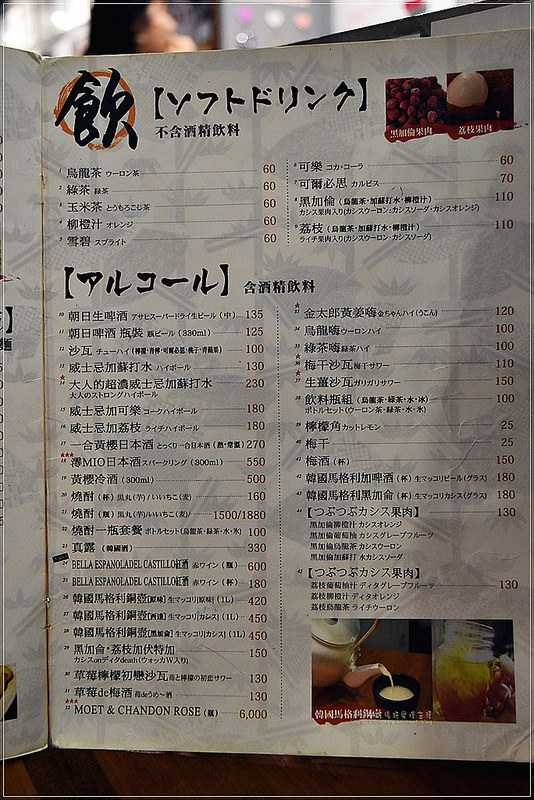 飲
【ソフトドリンク】
不含酒精飲料
黑加倫果肉
荔枝果肉
1 烏龍茶 ウーロン茶 60
2 綠茶 緑茶 60
3 玉米茶 とうもろこし茶 60
4 柳橙汁 オレンジ 60
5 雪碧 スプライト 60
6 可樂 コカ・コーラ 60
7 可爾必思 カルピス 70
8 黑加倫 (烏龍茶・加蘇打水・柳橙汁) 110
カシス果肉入り(カシスウーロン・カシスソーダ・カシスオレンジ)
9 荔枝 (烏龍茶・加蘇打水・柳橙汁) 110
ライチ果肉入り(カシスウーロン・カシスソーダ)
【アルコール】
含酒精飲料
10 朝日生啤酒 アサヒスーパードライ生ビール (中) 135
11 朝日啤酒 瓶裝 瓶ビール (330ml) 125
12 沙瓦 チューハイ 100
13 威士忌加蘇打水 ハイボール 130
14 大人的超濃威士忌加蘇打水 230
大人のストロングハイボール
15 威士忌加可樂 コークハイボール 180
16 威士忌加荔枝 ライチハイボール 180
17 一合黃櫻日本酒 とっくり一合日本酒 (熱・常溫) 270
18 澪MIO日本酒 スパークリング (300ml) 550
19 黃櫻冷酒 (300ml) 500
20 燒酎 (杯) 黒丸(芋)/いいちこ(麦) 160
21 燒酎 (瓶) 黒丸(芋)/いいちこ(麦) 1500/1880
22 燒酎一瓶套餐 ボトルセット(烏龍茶・綠茶・水、氷) 100
23 真露 (韓國酒) 330
24 BELLA ESPANOLADEL CASTILLO紅酒 赤ワイン (瓶) 600
25 BELLA ESPANOLADEL CASTILLO紅酒 赤ワイン (杯) 180
26 韓國馬格利銅壺[原味] 生マッコリ[原味] (1L) 420
27 韓國馬格利銅壺 生マッコリ[カシス] (1L) 450
28 韓國馬格利銅壺[黑加侖] 生マッコリ[カシス] (1L) 450
29 黑加倫・荔枝加伏特加 150
カシスonディタdeath(ウォッカW入り)
30 草莓檸檬初戀沙瓦 苺と檸檬の初恋サワー 130
31 草莓de梅酒 苺deうめ〜酒 130
32 MOET & CHANDON ROSE (瓶) 6,000
33 金太郎黃姜嗨 金ちゃんハイ(うこん) 120
34 烏龍嗨 ウーロンハイ 100
35 綠茶嗨 緑茶ハイ 100
36 梅干沙瓦 梅干サワー 110
37 生薑沙瓦 ガリガリサワー 150
38 飲料瓶組 (烏龍茶・綠茶・水・冰) 100
ボトルセット(ウーロン茶・緑茶・水、氷)
39 檸檬角 カットレモン 25
40 梅干 25
41 梅酒 (杯) 150
42 韓國馬格利加啤酒 (杯) 生マッコリビール(グラス) 180
43 韓國馬格利黑加侖 (杯) 生マッコリカシス(グラス) 180
44 【つぶつぶカシス果肉】 130
黑加倫柳橙汁 カシスオレンジ
黑加倫葡萄柚 カシスグレープフルーツ
黑加倫烏龍茶 カシスウーロン
黑加倫蘇打 水カシスソーダ
45 【つぶつぶカシス果肉】
荔枝葡萄柚汁 ディタグレープフルーツ 130
荔枝柳橙汁 ディタオレンジ
荔枝烏龍茶 ライチウーロン
韓國馬格利銅壺